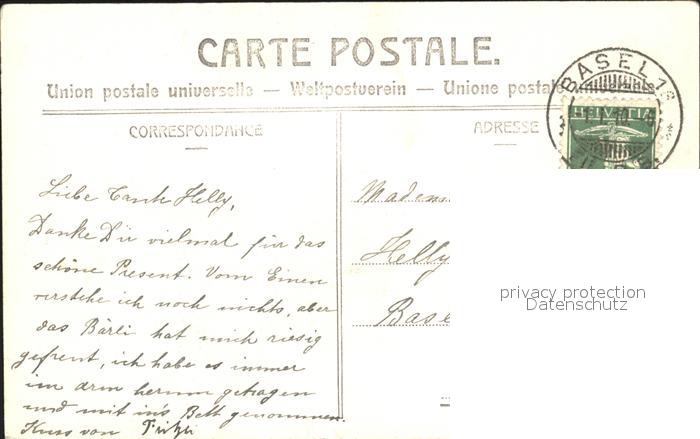 CARTE POSTALE.
Union postale universelle — Weltpostverein — Unione postale
BASEL 1
HELVETIA
CORRESPONDANCE
ADRESSE
Liebe Tante Helly,
Danke Dir vielmal für das
schöne Present. Vom Einen
verstehe ich noch nichts, aber
das Bärli hat mich riesig
gefreut, ich habe es immer
im arm herum getragen
und mit in's Bett genommen.
Kuss von Fritzli
Madem
Helly
Base
privacy protection
Datenschutz